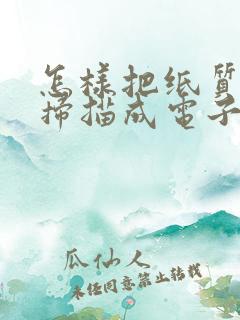 怎樣把纸質
掃描成電子
瓜仙人
未经同意禁止转载